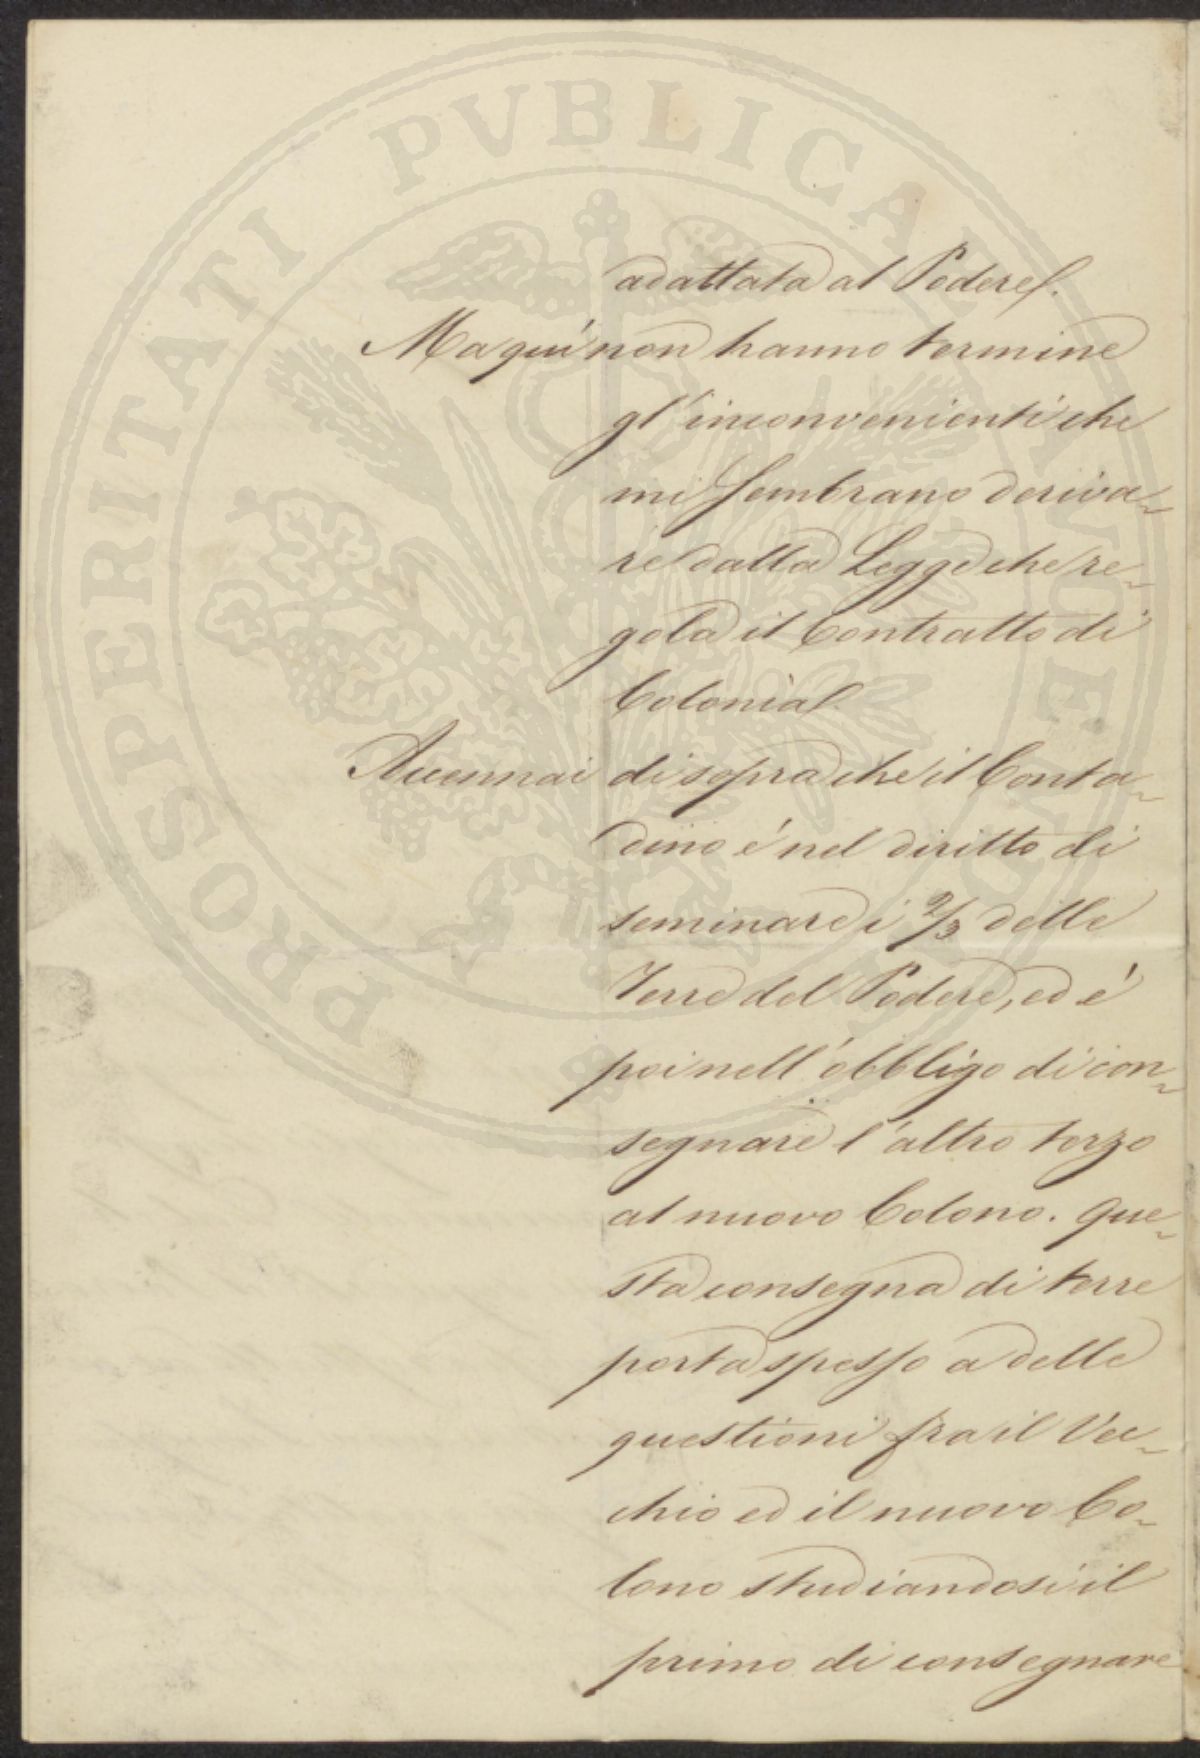 PROSPERITATI PVBLICAE
adattata al Podere.
Ma quí non hanno termine
gl'inconvenienti che
mi sembrano deriva-
re dalla Legge che re-
gola il Contratto di
Colonia
Accennai di sopra che il Conta-
dino é nel diritto di
seminare i 2/3 delle
Terre del Podere, ed é
poi nell'obbligo di con-
segnare l'altro terzo
al nuovo Colono. Que-
sta consegna di terre
porta spesso a delle
questioni fra il Vec-
chio ed il nuovo Co-
lono studiandosi il
primo di consegnare